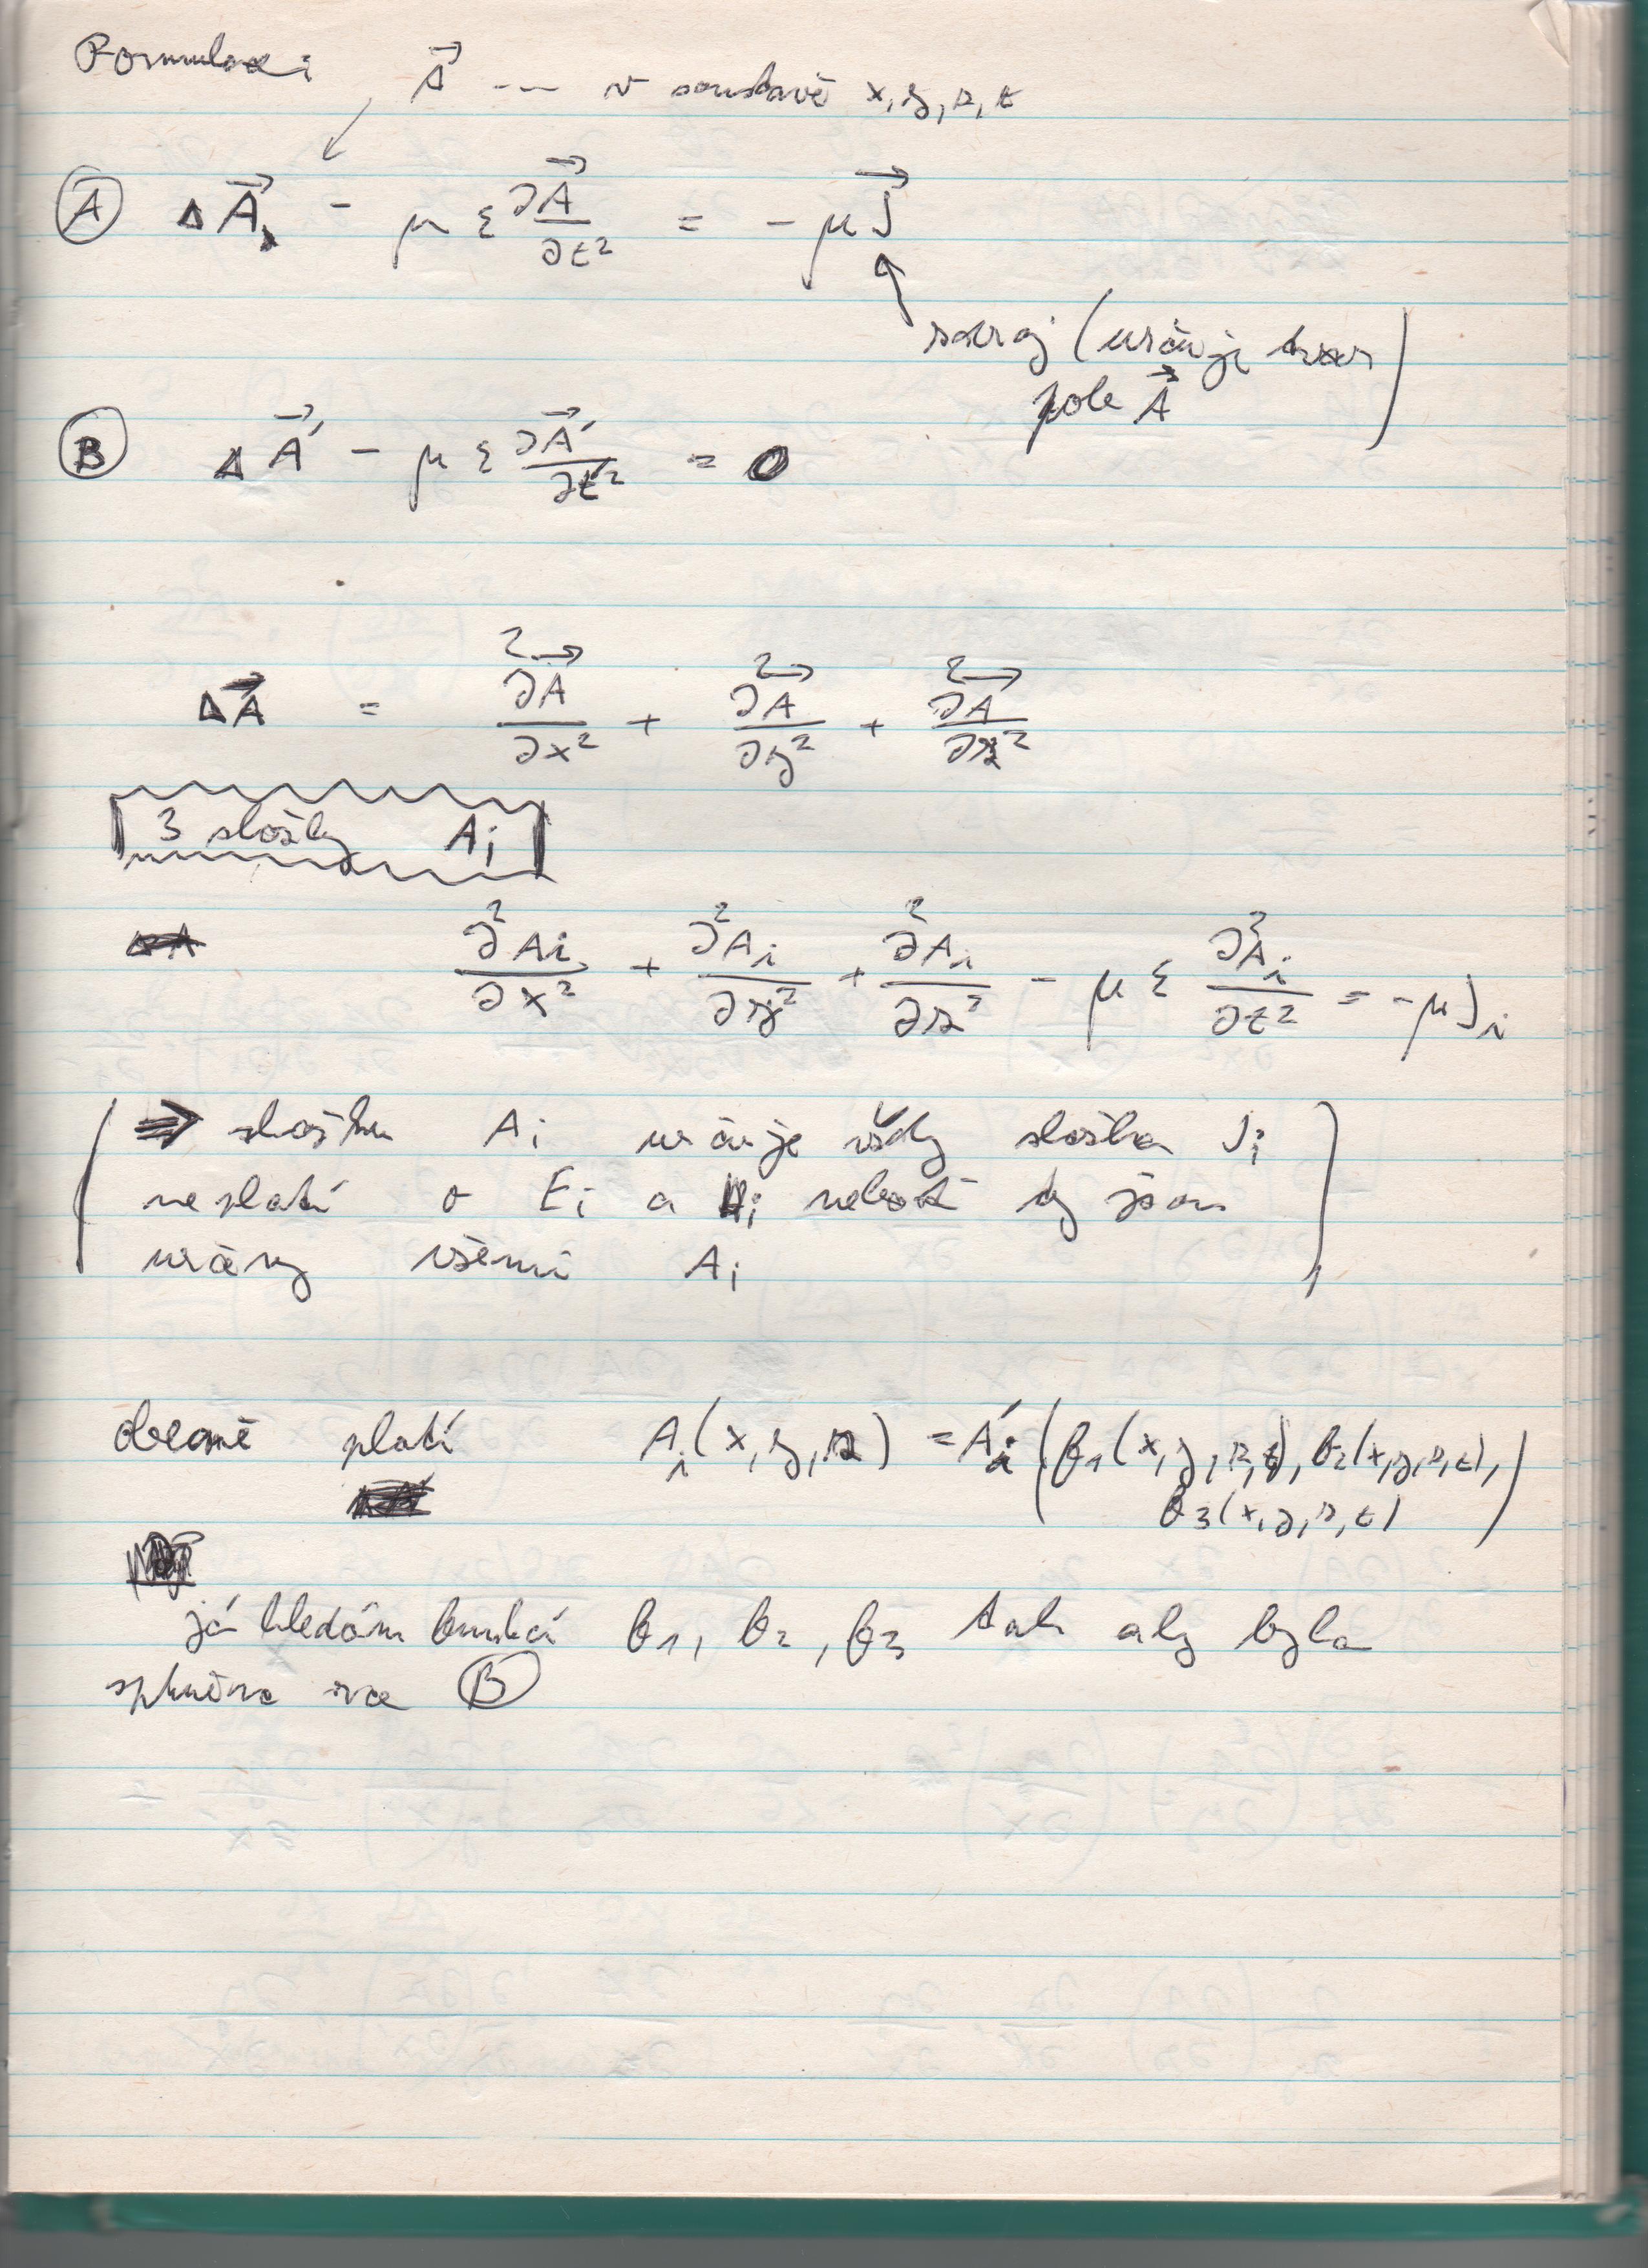 Formulace
A⃗ --- v soustavě x, y, z, t
Ⓐ ΔA⃗ - με ∂A⃗/∂t² = - μJ⃗
zdroj (určuje tvar
pole A⃗)
Ⓑ ΔA⃗' - με ∂A⃗'/∂t'² = 0
ΔA⃗ = ∂²A⃗/∂x² + ∂²A⃗/∂y² + ∂²A⃗/∂z²
3 složky Ai
∂²Ai/∂x² + ∂²Ai/∂y² + ∂²Ai/∂z² - με ∂²Ai/∂t² = -μJi
(⇒ složku Ai určuje vždy složka Ji
neplatí o Ei a Hi neboť ty jsou
určeny všemi Ai)
obecně platí Ai(x, y, z) = A'i(f1(x, y, z, t), f2(x, y, z, t),
f3(x, y, z, t))
já hledám f1, f2, f3 tak aby byla
splněna rce Ⓑ